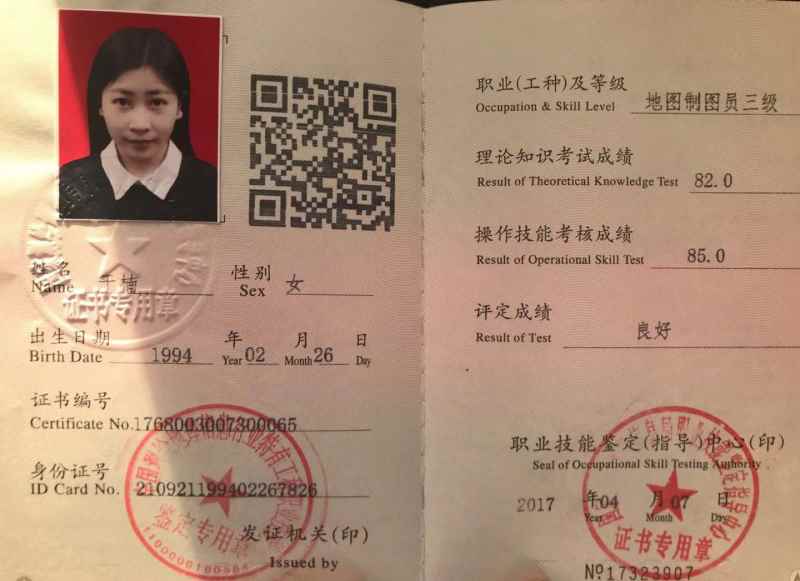 姓名
Name
性别
Sex 女
证书专用章
出生日期 年 月 日
Birth Date 1994 Year 02 Month 26 Day
证书编号
Certificate No. 1768003007300065
身份证号
ID Card No. 210921199402267826
鉴定专用章
发证机关(印)
Issued by
职业(工种)及等级
Occupation & Skill Level 地图制图员三级
理论知识考试成绩
Result of Theoretical Knowledge Test 82.0
操作技能考核成绩
Result of Operational Skill Test 85.0
评定成绩
Result of Test 良好
职业技能鉴定(指导)中心(印)
Seal of Occupational Skill Testing Authority
2017 年 04 月 07 日
Year Month Day
证书专用章
№17323907